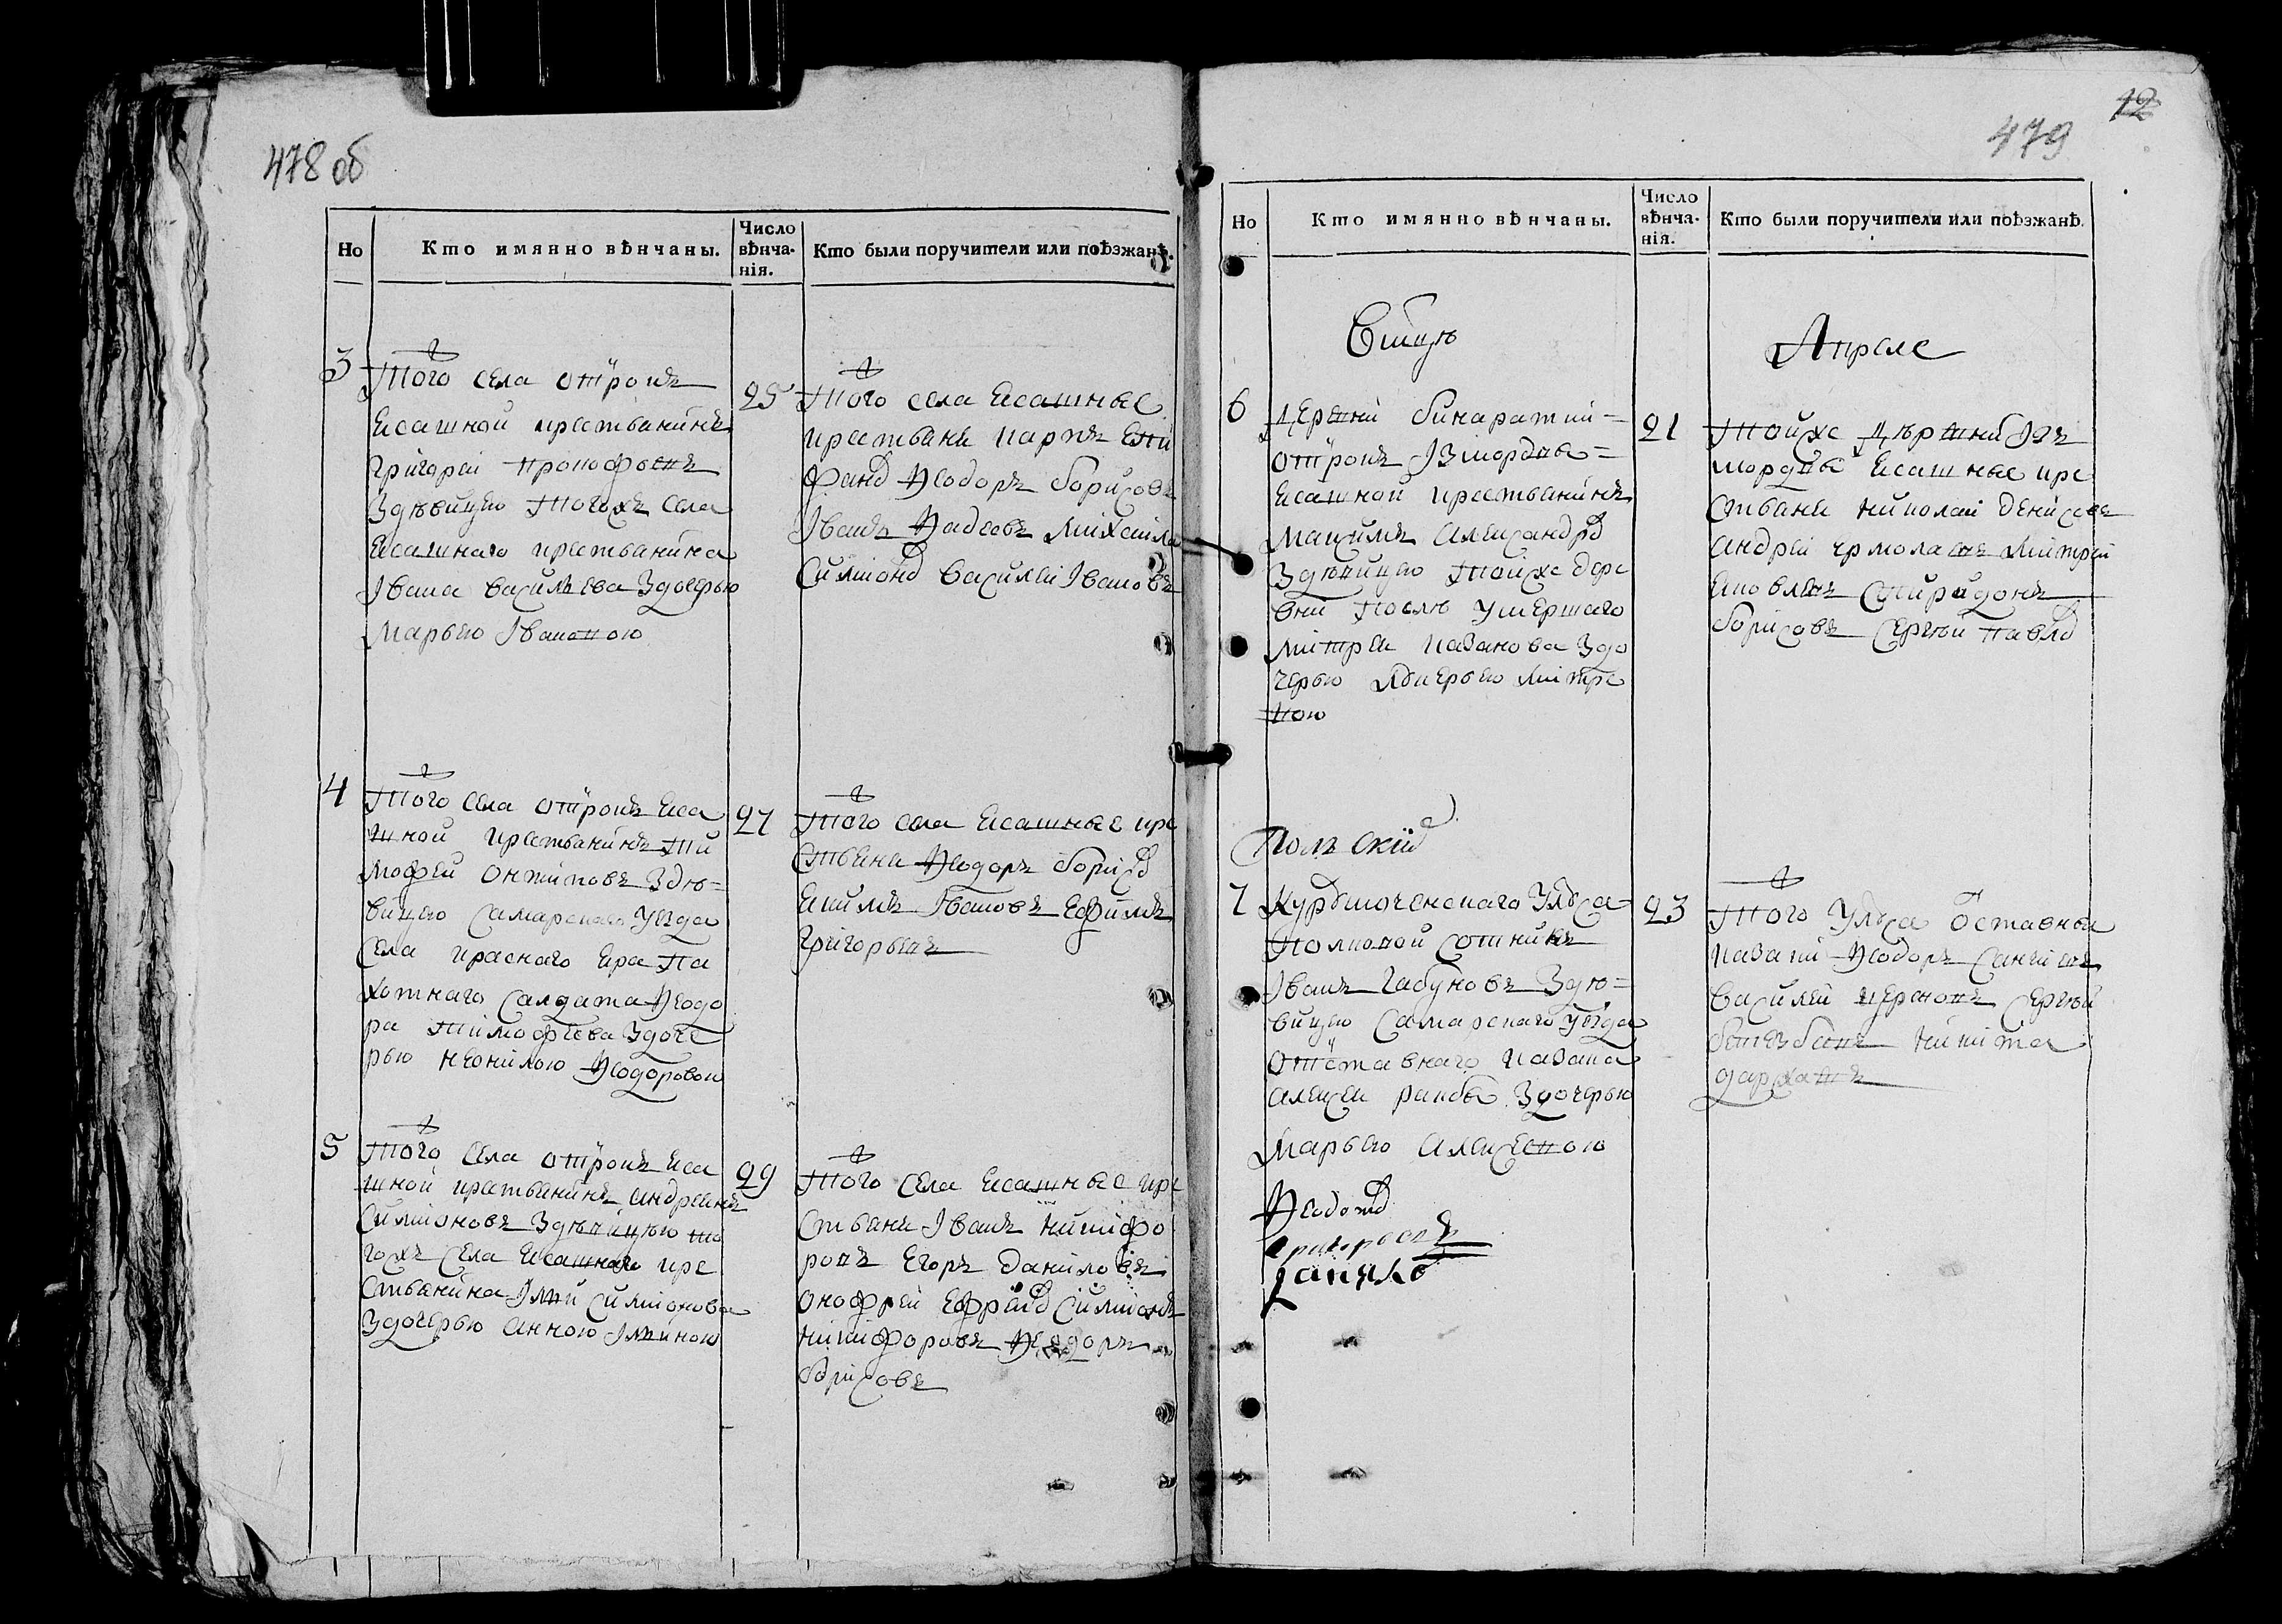 478 об
Но
Кто имянно вѣнчаны.
Число вѣнча-нія.
Кто были поручители или поѣзжанѣ.
3
Того села отрокъ
ясашной крестьянинъ
Григорей Прокофьевъ
здѣвицею тогожъ села
ясашнаго крестьянина
Ивана Васильева здочерью
Марьею Ивановою
25
Того села ясашные
крестьяне Карпъ Епи
фанов Ѳеодоръ Борисовъ
Иванъ Михаила
Симионов Василей Ивановъ
4
Того села отрокъ яса
шной крестьянинъ Ти
мофей Онтиповъ здѣ=
вицею Самарскаго уезда
села Краснаго Яра па
хотнаго салдата Ѳеодо
ра Тимофеева здоче
рью Неонилою Ѳеодоровою
27
Того села ясашные кре
стьяне Ѳеодоръ Борисов
Якимъ Ивановъ Ефимъ
Григорьевъ
5
Того села отрокъ яса
шной крестьянинъ Андреянъ
Симионовъ здѣвицею то
гожъ села ясашнаго кре
стьянина Симионова
здочерью Анною
29
Того села ясашные кре
стьяне Иванъ Никифо
ровъ Егоръ Даниловъ
Онофрей Симионъ
Никифоровъ Ѳеодоръ
Борисовъ
12
479
Но
Кто имянно вѣнчаны.
Число вѣнча-нія.
Кто были поручители или поѣзжанѣ.
Вмцѣ
Апреле
6
Деревни
отрокъ Измордвы=
ясашной крестьянинъ
Максимъ Александров
здѣвицею тойже дере
вни послѣ умершаго
Митреи Казакова здо
черью Митре
вою
21
Тойже деревни Изъ
мордвы ясашные кре
стьяне Николай Денисовъ
Андрей Ермолаевъ Митрей
Яковлевъ Спиридонъ
Борисовъ Сергѣй Павлов
7
улуса
полковой сотникъ
Иванъ здѣ=
вицею Самарскаго уезда
отставнаго казака
Алексеи здочерью
Марьею Алексевою
23
Того улуса отставные
казаки Ѳеодоръ
Василей Сергѣй
Никита